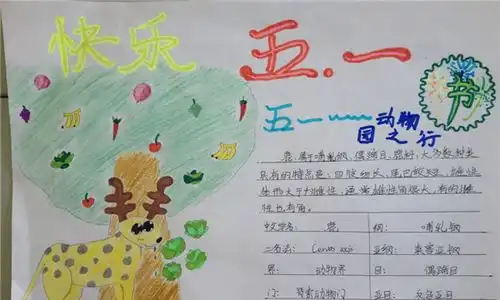 快乐 五.一 节
五一~~~动物
园之行
鹿,属于哺乳纲、偶蹄目、鹿科,大多数种类
具有的特点是:四肢细长、尾巴较短、雄性
体形大于雌性,通常雄性有角,有的雌
性也有角。
中文学名: 鹿 纲: 哺乳纲
二名法: 亚纲: 真兽亚纲
界: 动物界 目: 偶蹄目
门: 脊索动物门 亚目: 反刍亚目